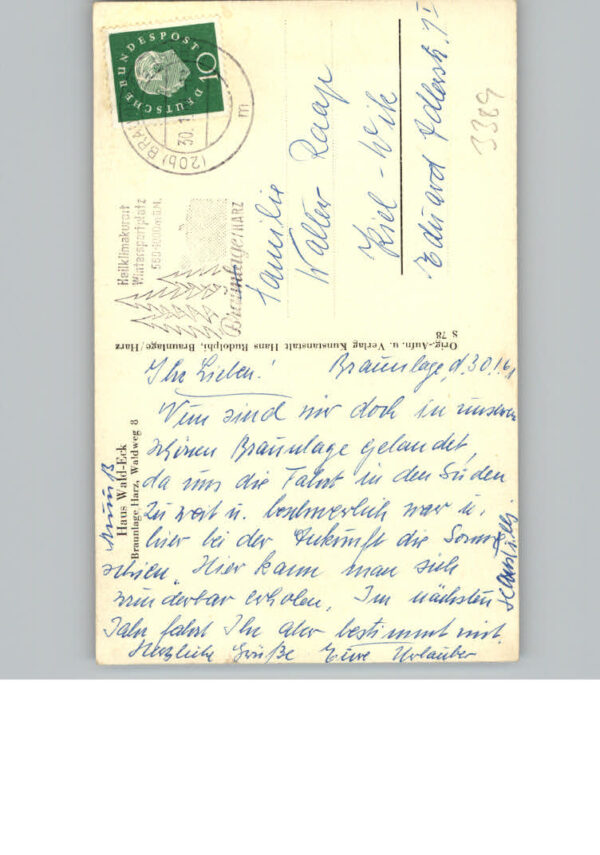 DEUTSCHE BUNDESPOST
10
(20b) BRAU
30.1
m
Heilklimakurort
Wintersportplatz
560-1000m ü.M.
Braunlage/HARZ
Familie
Walter Raap
Kiel-Wik
Eduard Adlerstr.
3389
Orig.-Aufn. u. Verlag Kunstanstalt Hans Rudolphi, Braunlage/Harz
S 78
Haus Wald-Eck
Braunlage Harz, Waldweg 8
Ihr Lieben! Braunlage, d. 30.1.61
Nun sind wir doch in unserem
schönen Braunlage gelandet,
da uns die Fahrt in den Süden
zu weit u. beschwerlich war u.
hier bei der Ankunft die Sonne
schien. Hier kann man sich
wunderbar erholen. Im nächsten
Jahr fahrt Ihr aber bestimmt mit.
Herzliche Grüße Eure Urlauber